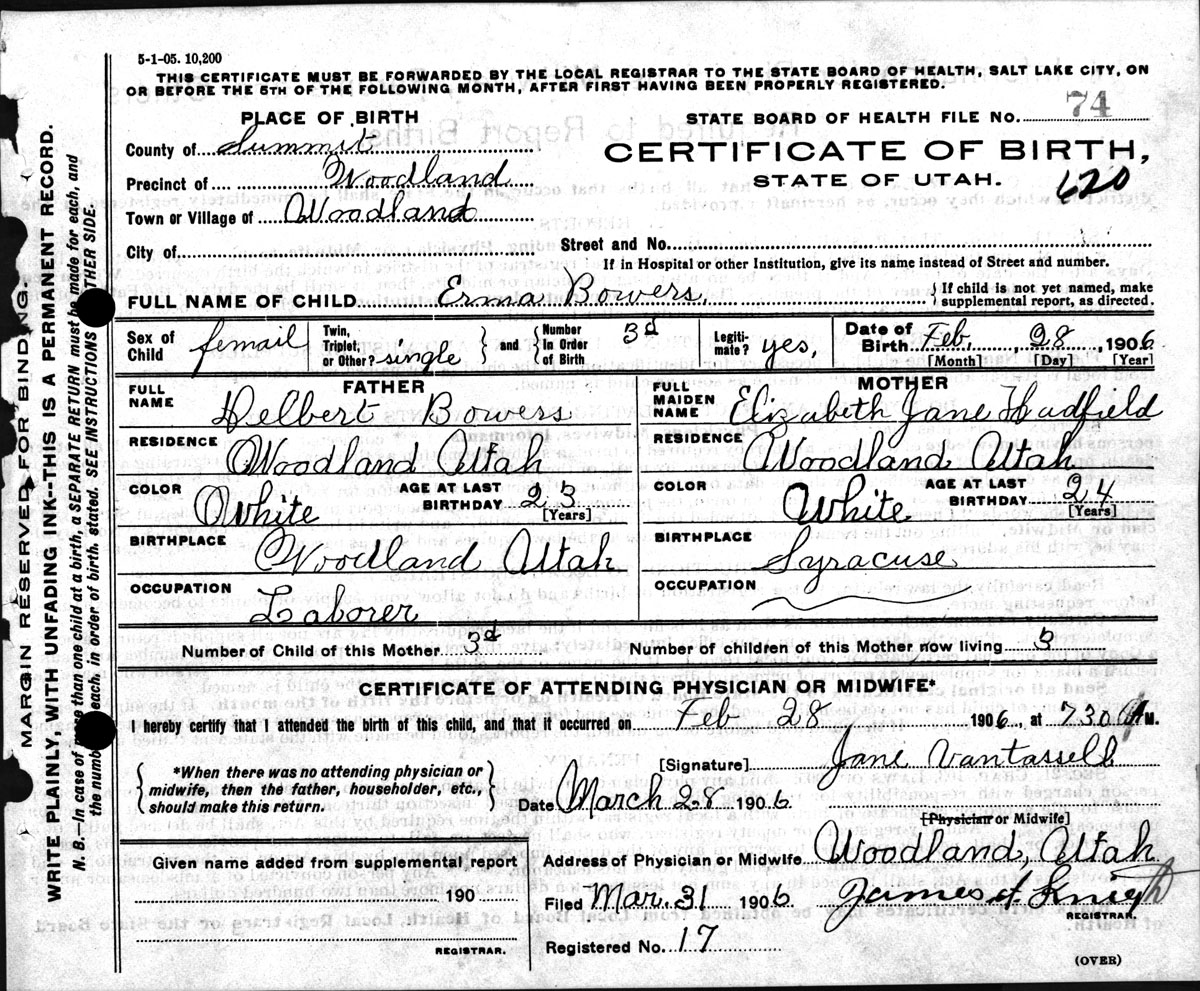 5-1-05. 10,200
THIS CERTIFICATE MUST BE FORWARDED BY THE LOCAL REGISTRAR TO THE STATE BOARD OF HEALTH, SALT LAKE CITY, ON
OR BEFORE THE 5TH OF THE FOLLOWING MONTH, AFTER FIRST HAVING BEEN PROPERLY REGISTERED.
PLACE OF BIRTH
STATE BOARD OF HEALTH FILE NO. 74
County of Summit
CERTIFICATE OF BIRTH,
Precinct of Woodland
STATE OF UTAH. 620
Town or Village of Woodland
City of
Street and No.
If in Hospital or other Institution, give its name instead of Street and number.
FULL NAME OF CHILD Erma Bowers. { If child is not yet named, make supplemental report, as directed.
Sex of Child femail
Twin, Triplet, or Other? single } and { Number In Order of Birth 3d
Legiti-mate? yes,
Date of Birth Feb, 28 1906
[Month] [Day] [Year]
FATHER
FULL NAME Delbert Bowers
RESIDENCE Woodland Utah
COLOR White
AGE AT LAST BIRTHDAY 23 [Years]
BIRTHPLACE Woodland Utah
OCCUPATION Laborer
MOTHER
FULL MAIDEN NAME Elizabeth Jane Hadfield
RESIDENCE Woodland Utah
COLOR White
AGE AT LAST BIRTHDAY 24 [Years]
BIRTHPLACE Syracuse
OCCUPATION
Number of Child of this Mother 3d
Number of children of this Mother now living 3
CERTIFICATE OF ATTENDING PHYSICIAN OR MIDWIFE*
I hereby certify that I attended the birth of this child, and that it occurred on Feb 28 1906, at 730 A M.
[Signature] Jane Vantassell
{ *When there was no attending physician or midwife, then the father, householder, etc., should make this return. }
Date March 28 1906
[Physician or Midwife]
Address of Physician or Midwife Woodland, Utah
Given name added from supplemental report
190
REGISTRAR.
Filed Mar. 31 1906 James A. Knight
REGISTRAR.
Registered No. 17
(OVER)
MARGIN RESERVED FOR BINDING.
WRITE PLAINLY, WITH UNFADING INK--THIS IS A PERMANENT RECORD.
N. B.—In case of more than one child at a birth, a SEPARATE RETURN must be made for each, and
the number of each, in order of birth, stated. SEE INSTRUCTIONS ON OTHER SIDE.